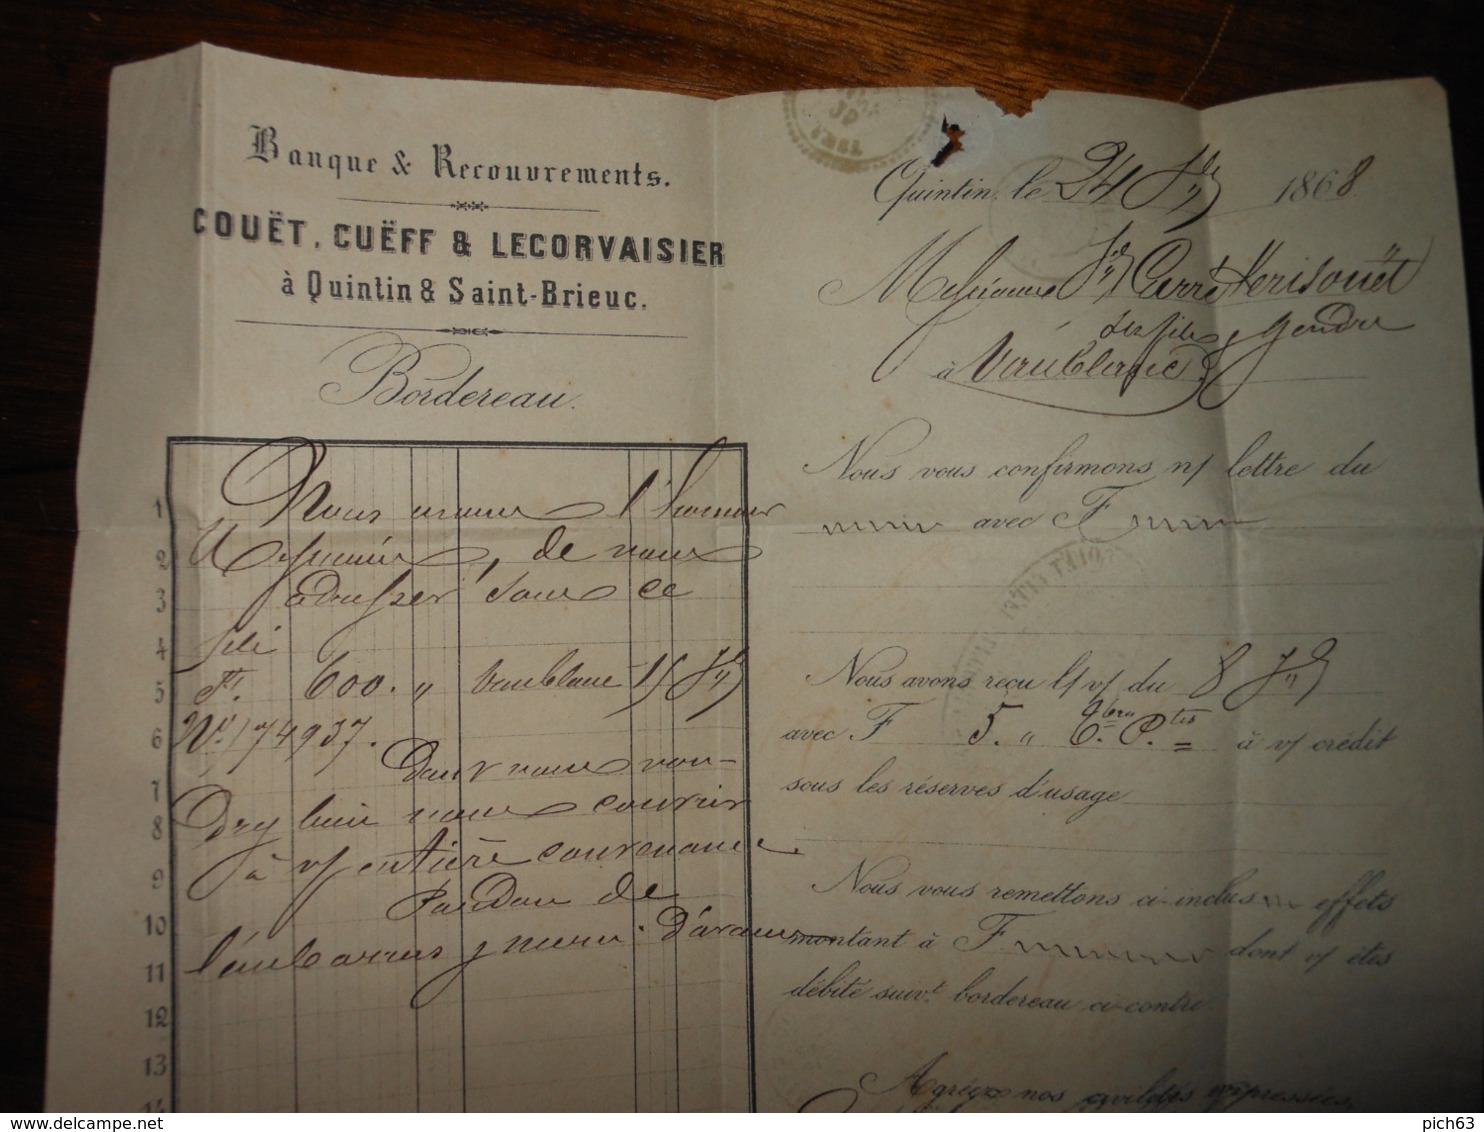 Banque & Recouvrements.
COUËT, CUËFF & LECORVAISIER
à Quintin & Saint-Brieuc.
Bordereau.
Quintin, le 24 1868
Messieurs Carré Kerisouët
fils & gendre
à Vaublanc
1 Nous avons l'honneur
2 Messieurs, de vous
3 adresser sous ce
4 pli
5 Ft. 600. " Vaublanc 15
6 No. 174937.
7
8 bien nous couvrir
9 à v/ entière convenance
10 Pardon de
11 l'embarras & merci d'avance
12
13
14
Nous vous confirmons n/ lettre du
avec F
Nous avons reçu l/ v/ du 8
avec F 5. " à v/ crédit
sous les réserves d'usage
Nous vous remettons ci-inclus effets
montant à F dont v/ êtes
débité suivt. bordereau ci-contre
Agréez nos civilités empressées,
pich63